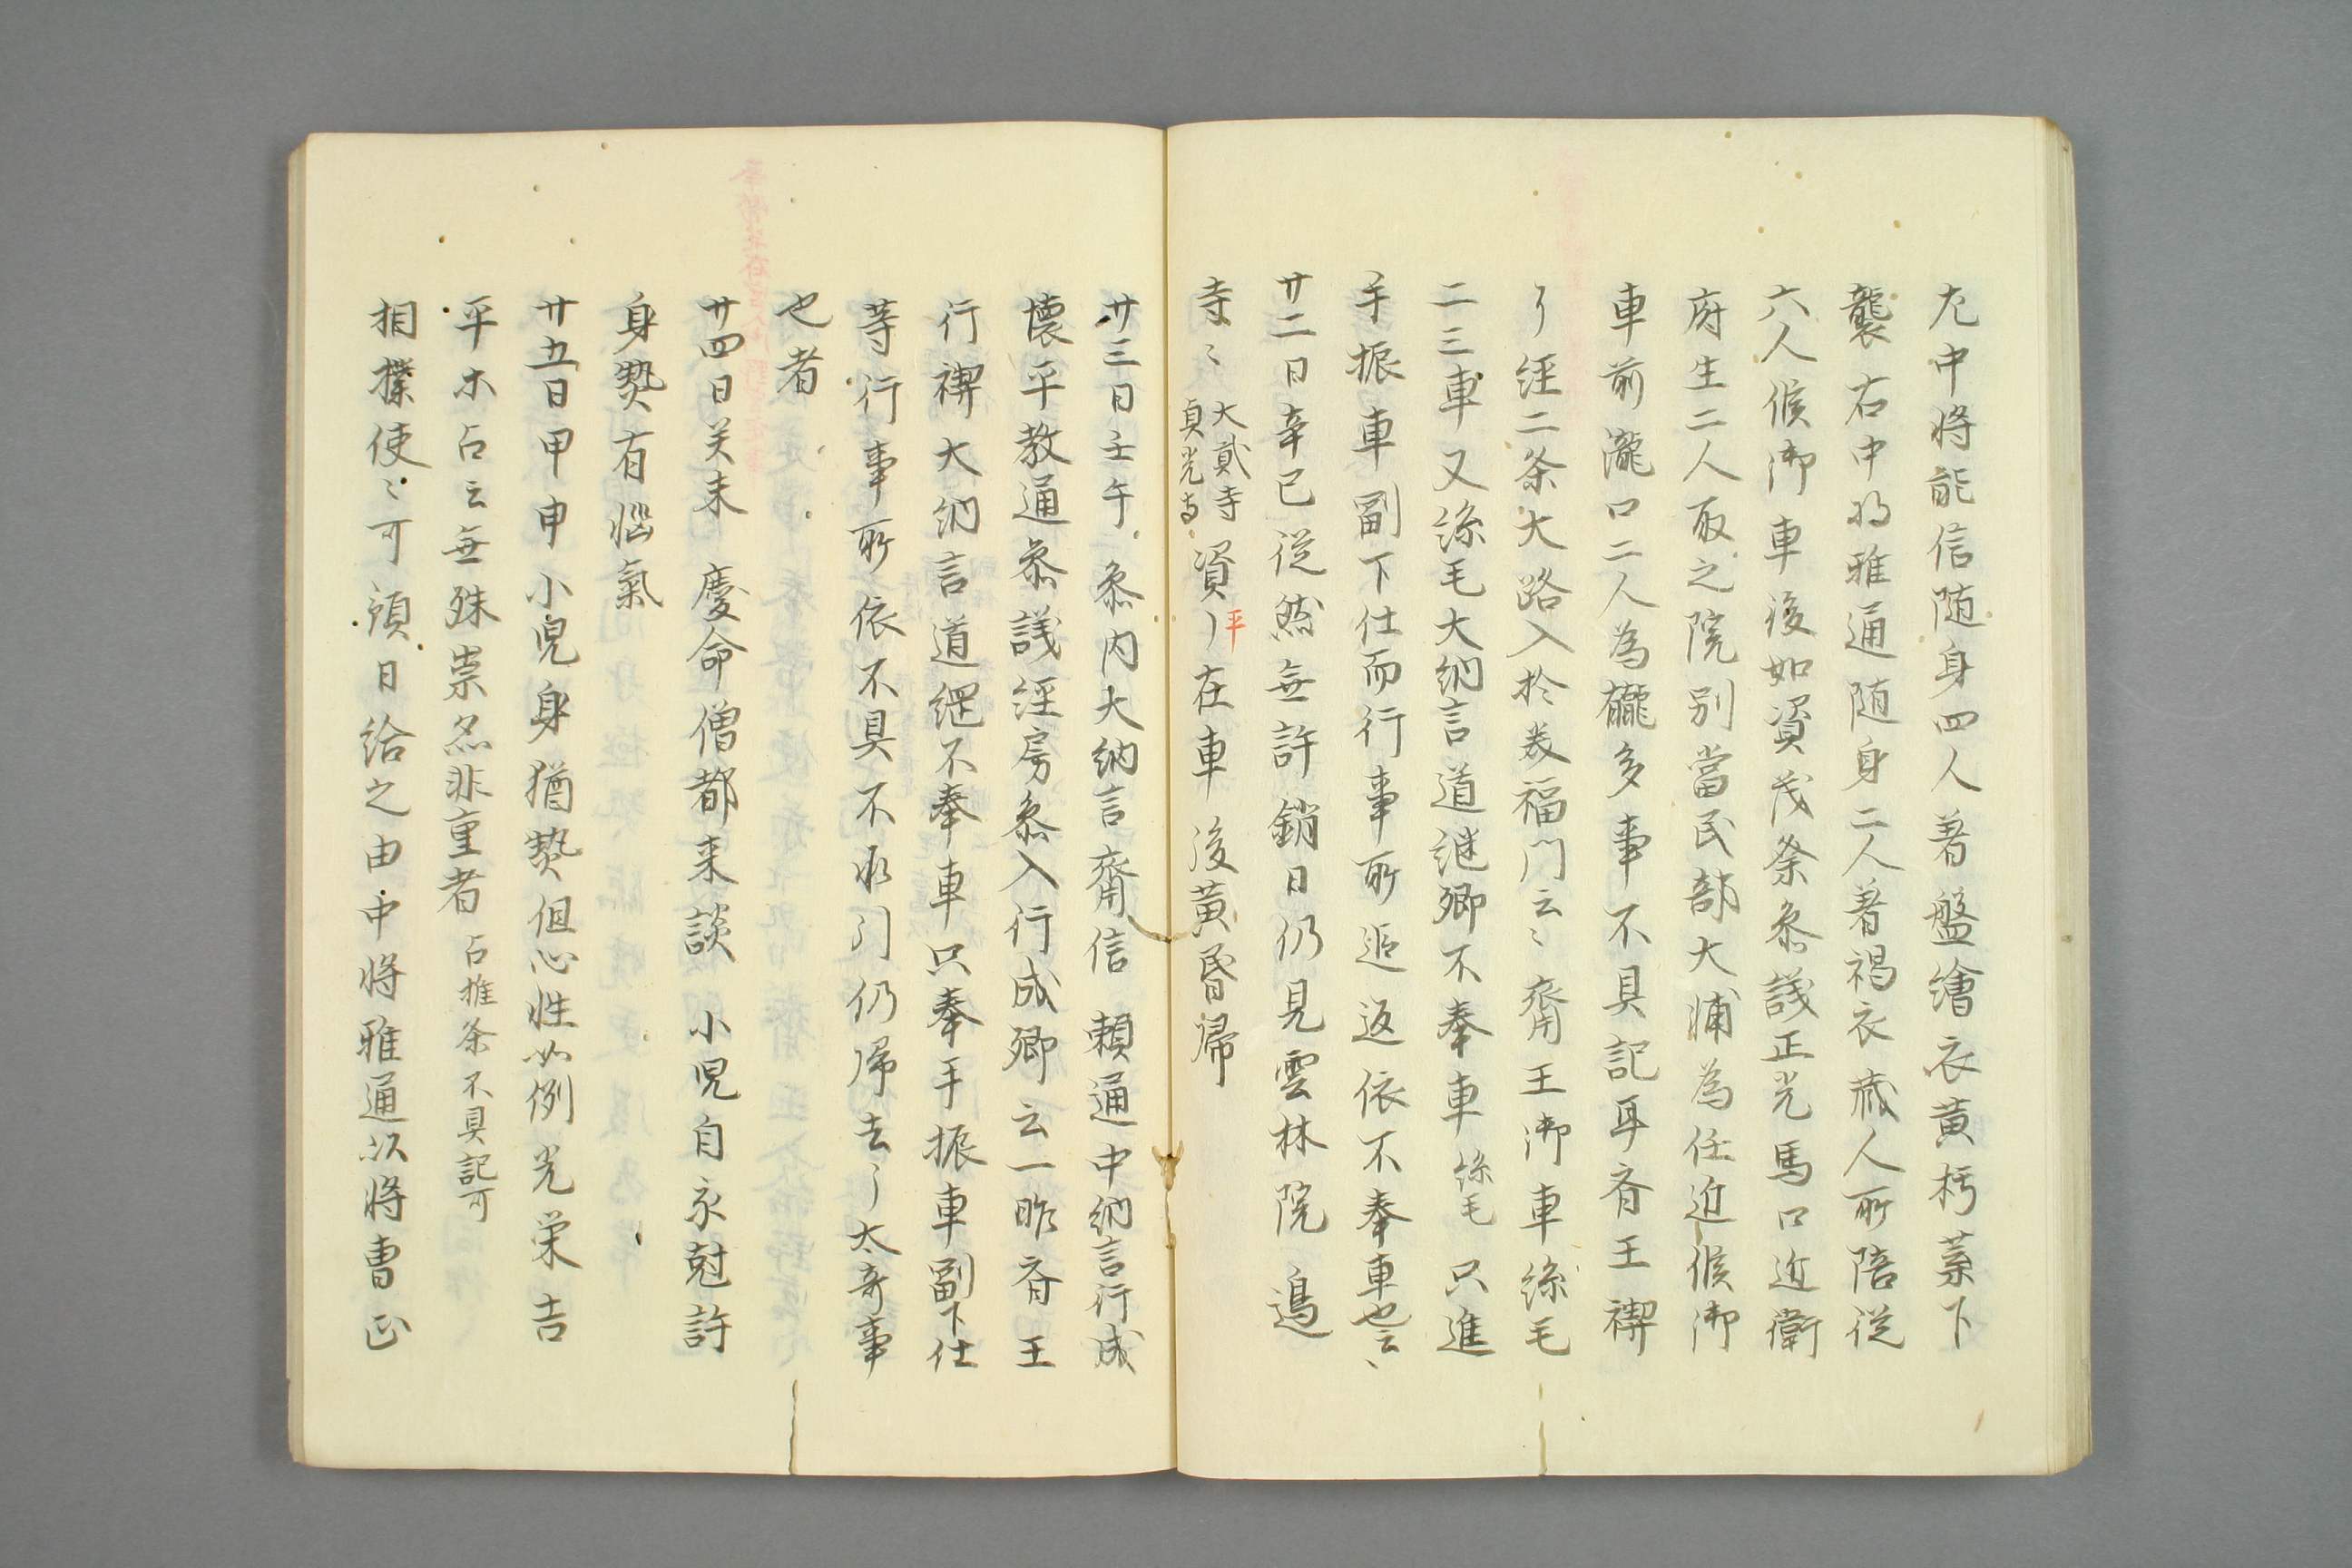 左中将能信随身四人著盤繪衣黄朽葉下
襲右中将雅通随身二人著褐衣蔵人所陪従
六人候御車後如資茂祭参議正光馬口近衛
府生二人取之院別當民部大輔為任近候御
車前瀧口二人為龓多事不具記耳斎王禊
了経二条大路入於美福門云〻齋王御車絲毛
二三車又絲毛大納言道継卿不奉車絲毛只進
手振車副下仕而行事所追返依不奉車也云〻
廿二日辛巳従然無許銷日仍見雲林院邊
寺〻大貳寺貞光寺資平在車後黄昏帰
廿三日壬午参内大納言齋信頼通中納言行成
懐平教通参議経房参入行成卿云一昨斎王
行禊大納言道綱不奉車只奉手振車副下仕
等行事所依不具不承引仍帰去了太奇事
也者
廿四日癸未慶命僧都来談小児自永尅許
身𤍠有悩氣
廿五日甲申小児身猶𤍠但心性如例光栄吉
平ホ占云無殊祟𠇮非重者占推条不具記可
相撲使〻可領日給之由中将雅通以将曹正